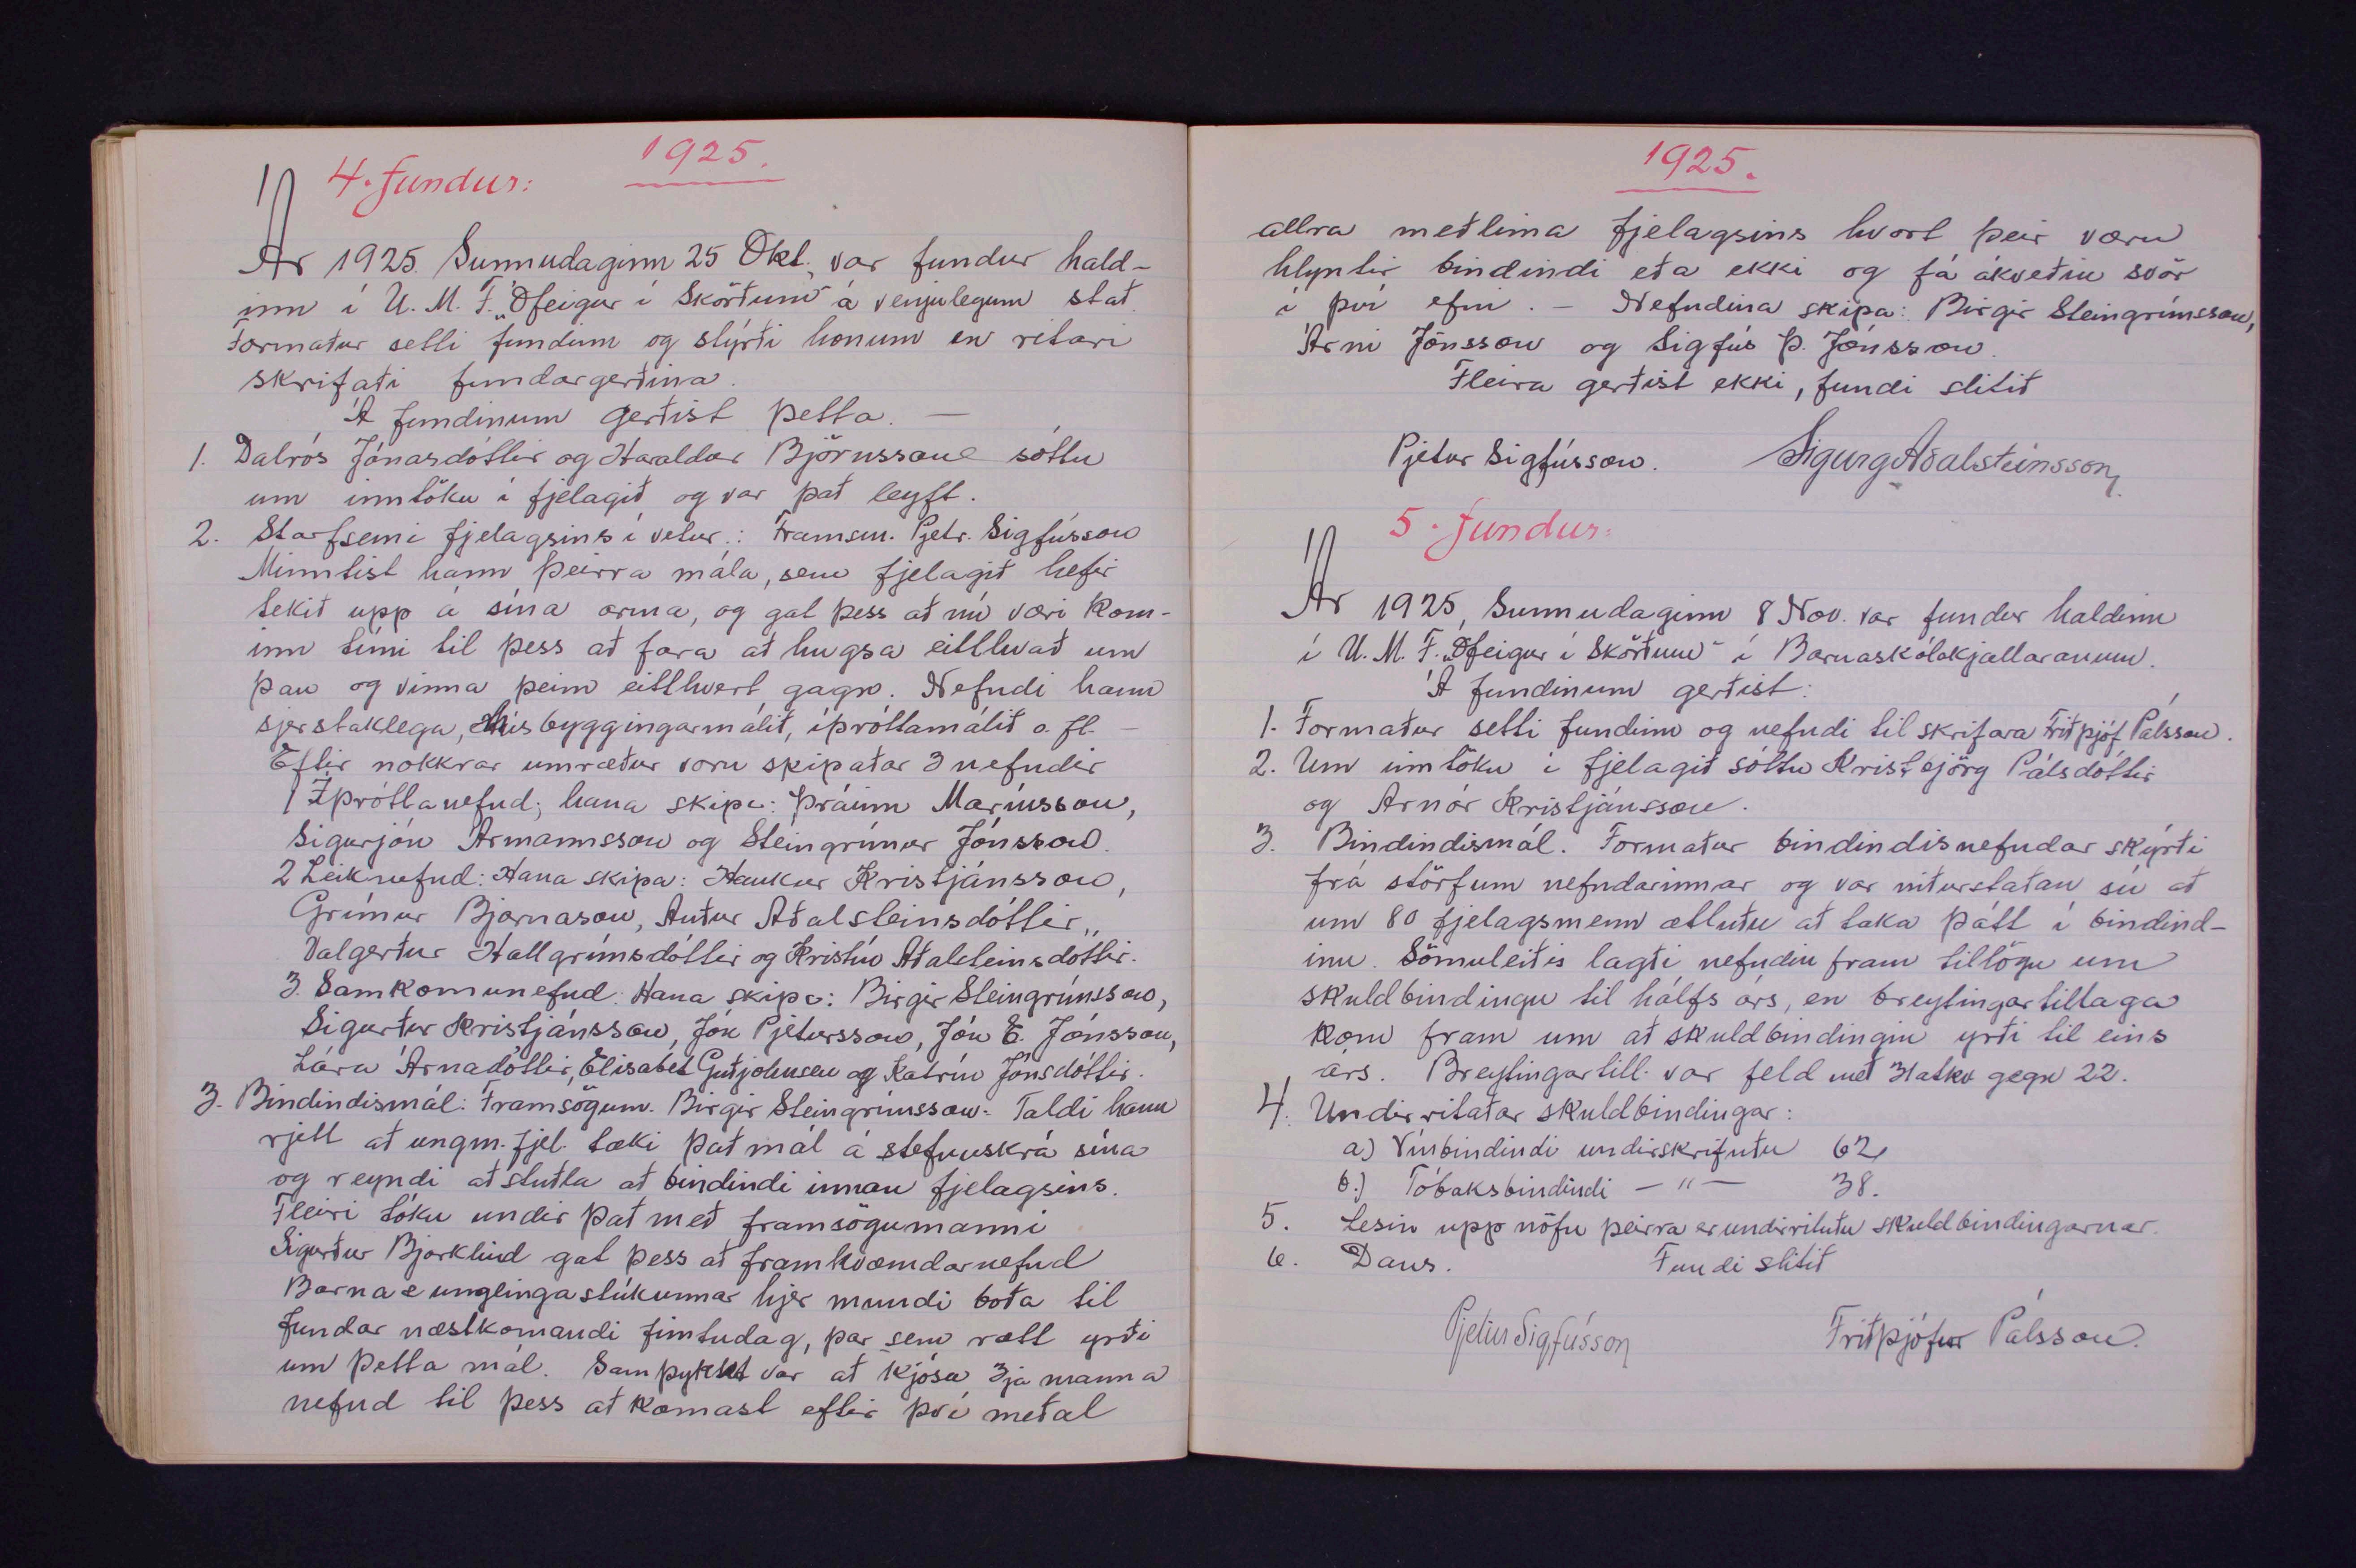 1925.
4. fundur:
Ár 1925. Sunnudaginn 25 Okt. var fundur hald-
inn í U. M. F. „Ófeigur í Skörðum“ á venjulegum stað.
Formaður setti fundinn og stýrði honum en ritari
skrifaði fundargerðina.
Á fundinum gerðist þetta. —
1. Dalrós Jónasdóttir og Haraldur Björnsson sóttu
um inntöku í fjelagið og var það leyft.
2. Starfsemi fjelagsins í vetur.: Framsm. Pjetr. Sigfússon
Minntist hann þeirra mála, sem fjelagið hefir
tekið upp á sína arma, og gat þess að nú væri kom-
inn tími til þess að fara að hugsa eitthvað um
þau og vinna þeim eitthvert gagn. Nefndi hann
sjerstaklega, húsbyggingarmálið, íþróttamálið o. fl. —
Eftir nokkrar umræður voru skipaðar 3 nefndir
1 Íþróttanefnd; hana skipa: Þráinn Maríusson,
Sigurjón Ármannsson og Steingrímur Jónsson.
2 Leiknefnd: Hana skipa: Haukur Kristjánsson,
Grímur Bjarnason, Auður Aðalsteinsdóttir,
Valgerður Hallgrímsdóttir og Kristín Aðalsteinsdóttir.
3. Samkomunefnd: Hana skipa: Birgir Steingrímsson,
Sigurður Kristjánsson, Jón Pjetursson, Jón E. Jónsson,
Lára Árnadóttir, Elísabet Guðjohnsen og Katrín Jónsdóttir.
3. Bindindismál: Framsögum. Birgir Steingrímsson. Taldi hann
rjett að ungm.fjel. tæki það mál á stefnuskrá sína
og reyndi að stuðla að bindindi innan fjelagsins.
Fleiri tóku undir það með framsögumanni
Sigurður Bjarklind gat þess að framkvæmdarnefnd
Barna & unglingastúkunnar hjer mundi boða til
fundar næstkomandi fimtudag, þar sem rætt yrði
um þetta mál. Samþykkt var að kjósa 3ja manna
nefnd til þess að komast eftir því meðal
1925.
allra meðlima fjelagsins hvort þeir væru
hlyntir bindindi eða ekki og fá ákveðin svör
í því efni. — Nefndina skipa: Birgir Steingrímsson,
Árni Jónsson og Sigfús Þ. Jónsson.
Fleira gerðist ekki, fundi slitið
Pjetur Sigfússon. Sigurg Aðalsteinsson,
5. fundur:
Ár 1925, Sunnudaginn 8 Nov. var fundur haldinn
í U. M. F. „Ófeigur í Skörðum“ í Barnaskólakjallaranum.
Á fundinum gerðist:
1. Formaður setti fundinn og nefndi til skrifara Friðþjóf Pálsson.
2. Um inntöku í fjelagið sóttu Kristbjörg Pálsdóttir
og Arnór Kristjánsson.
3. Bindindismál. Formaður bindindisnefndar skýrði
frá störfum nefndarinnar og var niðurstaðan sú að
um 80 fjelagsmenn ætluðu að taka þátt í bindind-
inu. Sömuleiðis lagði nefndin fram tillögu um
skuldbindingu til hálfs árs, en breytingartillaga
kom fram um að skuldbindingin yrði til eins
árs. Breytingartill. var feld með 31 atkv gegn 22.
4. Undirritaðar skuldbindingar:
a) Vínbindindi undirskrifuðu 62
b.) Tóbaksbindindi — " — 38.
5. Lesin upp nöfn þeirra er undirrituðu skuldbindingarnar.
6. Dans. Fundi slitið
Pjetur Sigfússon Friðþjófur Pálsson.